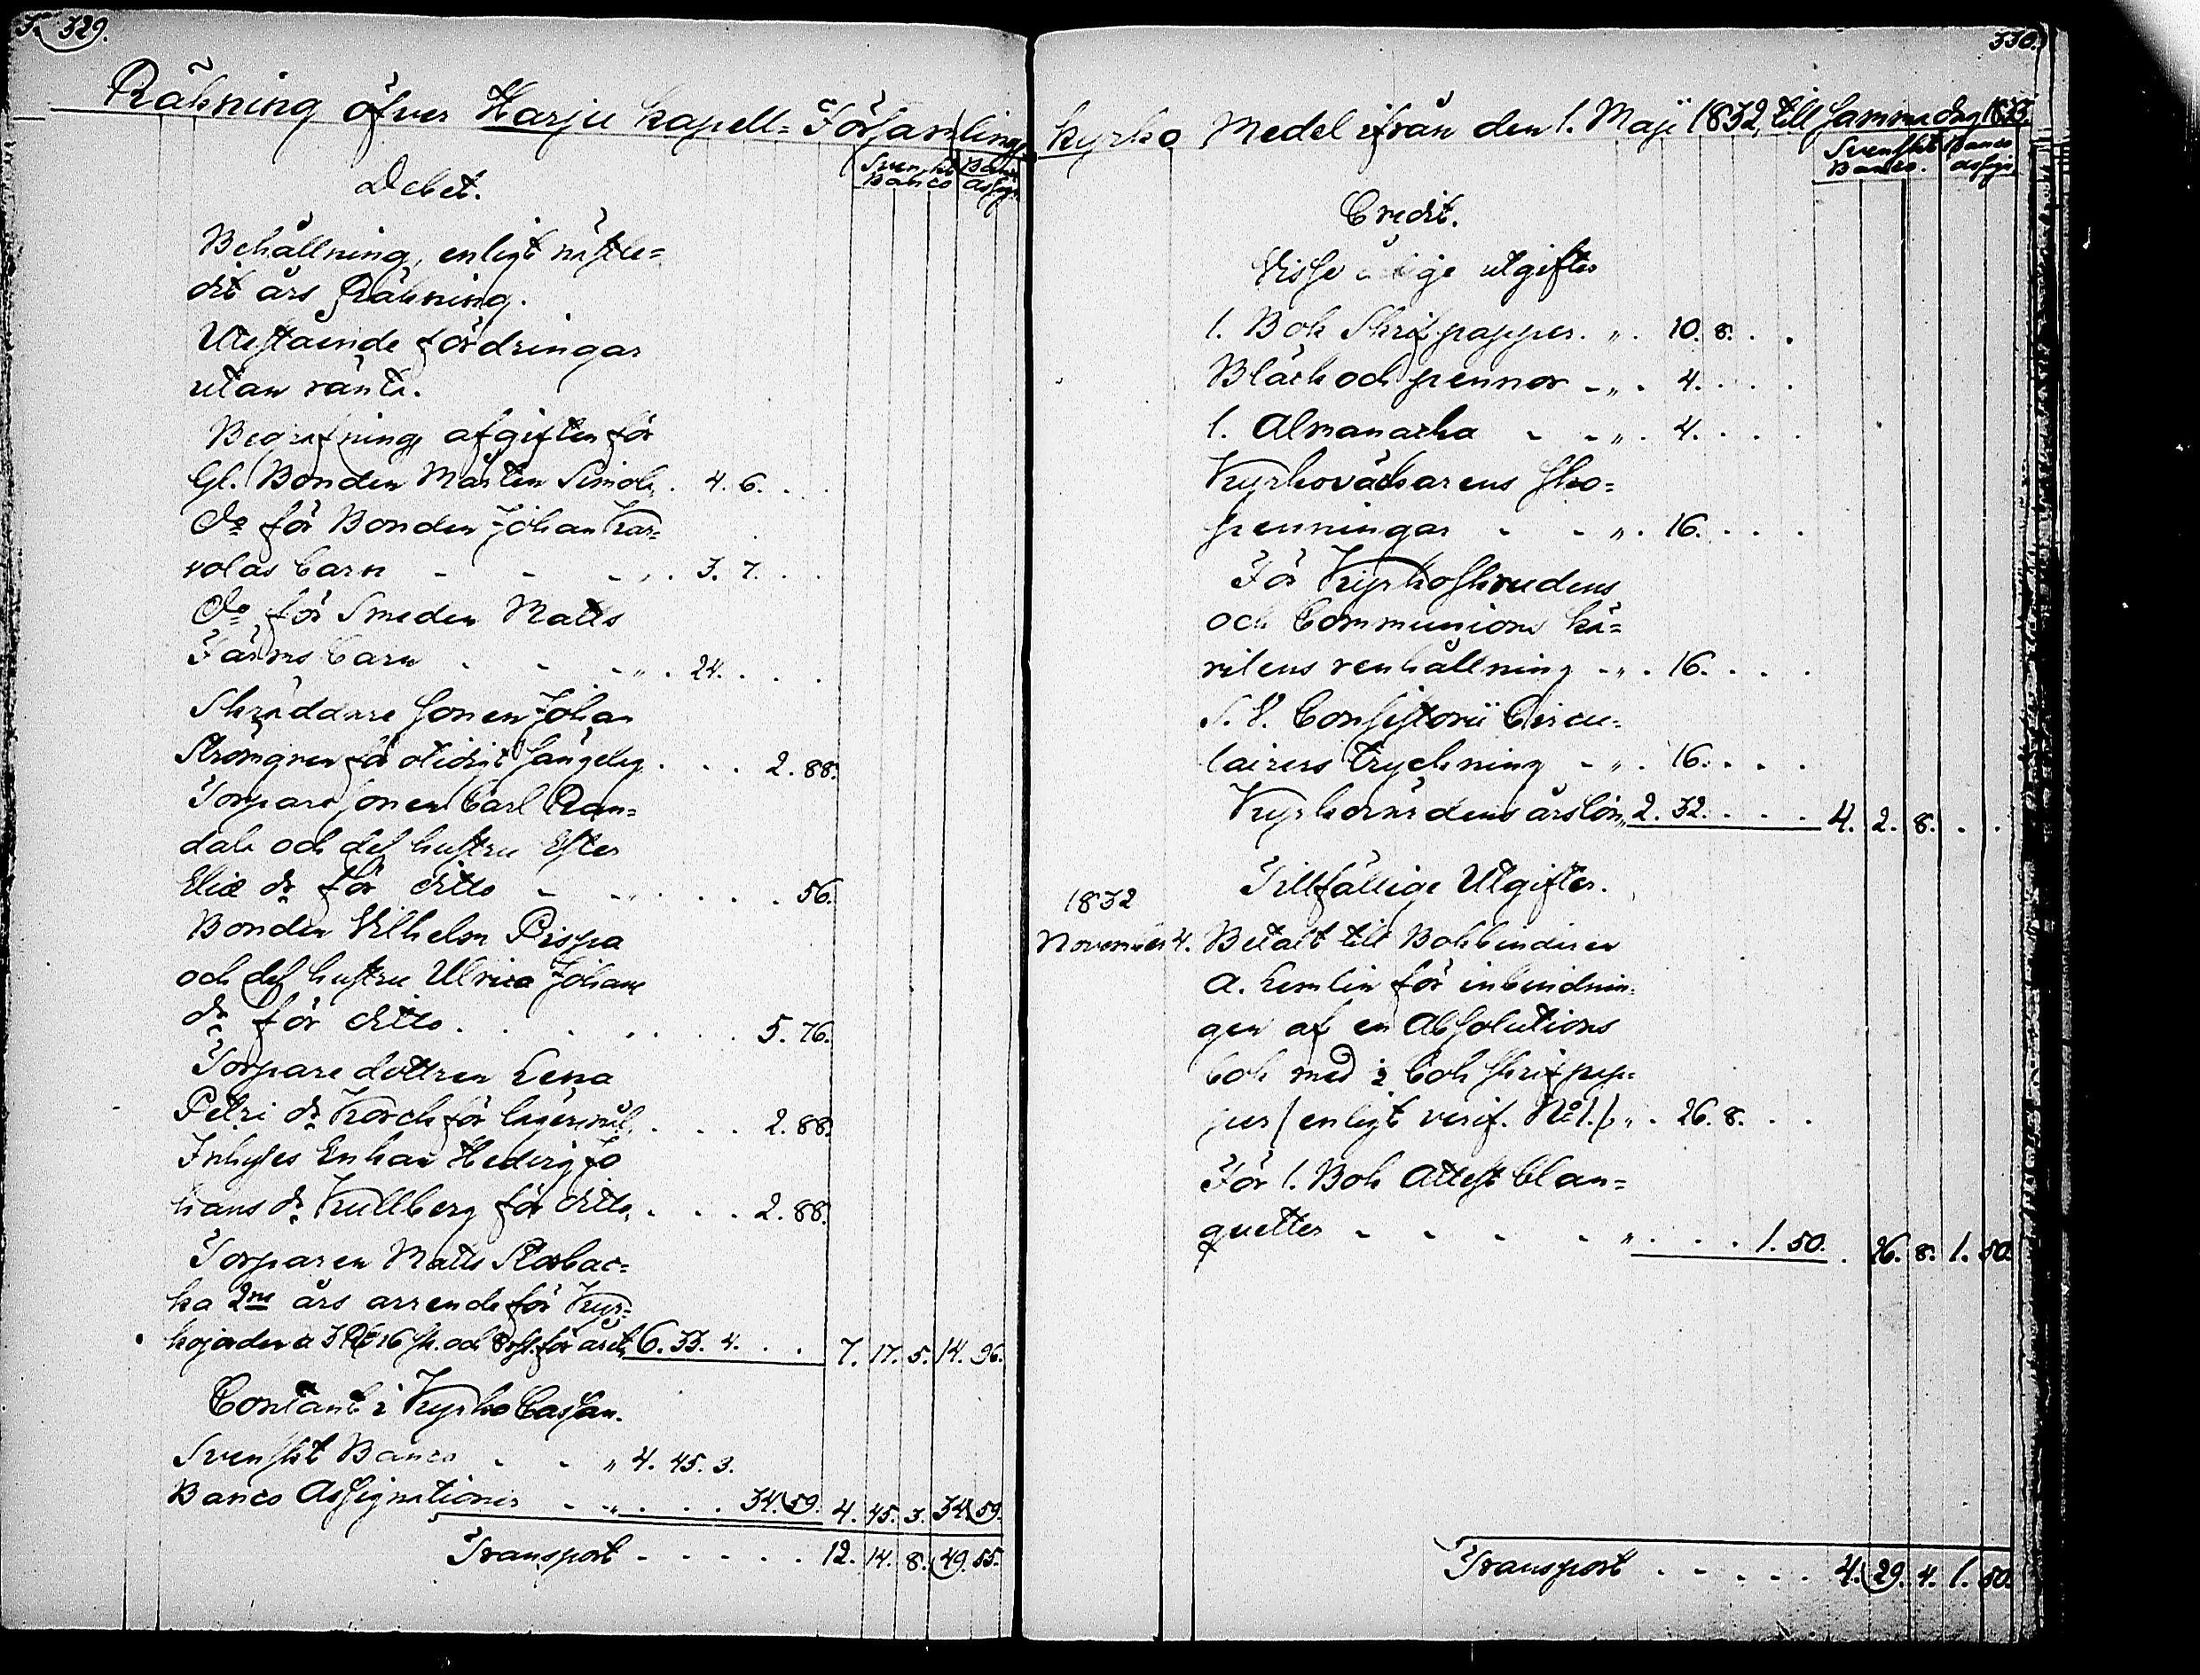 329.
Räkning öfver Harju kapell=Församlings
Debet.
Svenskt Banco
Banco Assign.
Behållning, enligt nästle=
dit års Räkning.
Utestående fordringar
utan ränta.
Begrafnings afgiften för
Gl. Bonden Mårten Simola . 4. 6. . .
Do för Bonden Johan Kar=
volas barn - - - „ . 3. 7. . .
Do för Smeden Matts
Färms barn . - - „ . 24. . . .
Skräddare sonen Johan
Strömgren för otidigt sängelag . . . 2. 88.
Torpare sonen Carl Ran=
dala och dess hustru Ester
Eliæ dr för ditto - - „ . . . . 56.
Bonden Vilhelm Pispa
och dess hustru Ulrica Johans
dr för ditto . . . . . . 5. 76.
Torpare dottren Lena
Petri dr Korck för lägersmål . . . 2. 88.
Inhyses Enkan Hedvig Jo
hans dr Kullberg för ditto . . . 2. 88.
Torparen Matts Storbac=
ka 2ne års arrende för Kyr=
kojorden a 3 R 16 sk. och 8 rst. för året 6. 33. 4. . . 7. 17. 5. 14. 96.
Contant i Kyrko Cassan.
Svenskt Banco - - „ 4. 45. 3.
Banco Assignationer - - „ . . . 34. 59. 4. 45. 3. 34. 59.
Transport - - - - - 12. 14. 8. 49. 55.
330.
Kyrko Medel ifrån den 1. Maji 1832, till samma dag 1833.
Svenskt Banco.
Banco Assign
Credit.
Visse årlige utgifter
1. Bok Skrifpapper. „ . 10. 8. . .
Bläck och pennor - „ . 4. . . .
1. Almanacka - - „ . 4. . . .
Kyrkoväckarens sko=
penningar - - „ . 16. . . .
För Kyrkoskrudens
och Communions kä=
rilens renhållning - „ . 16. . . .
S. V. Consistorii Circu=
lairers tryckning - „ . 16. . . .
Kyrkovärdens årslön „ 2. 32. . . . 4. 2. 8. . .
Tillfällige Utgifter.
1832
November 4. Betalt till Bokbindaren
A. Hemlin för inbindnin=
gen af en Absolutions
bok med 2 bok skrifpap=
per / enligt verif. No 1. / „ . 26. 8. . .
För 1. Bok Attest blan=
quetter - - - - „ . . . 1. 50. . 26. 8. 1. 50.
Transport - - - - - 4. 29. 4. 1. 50.